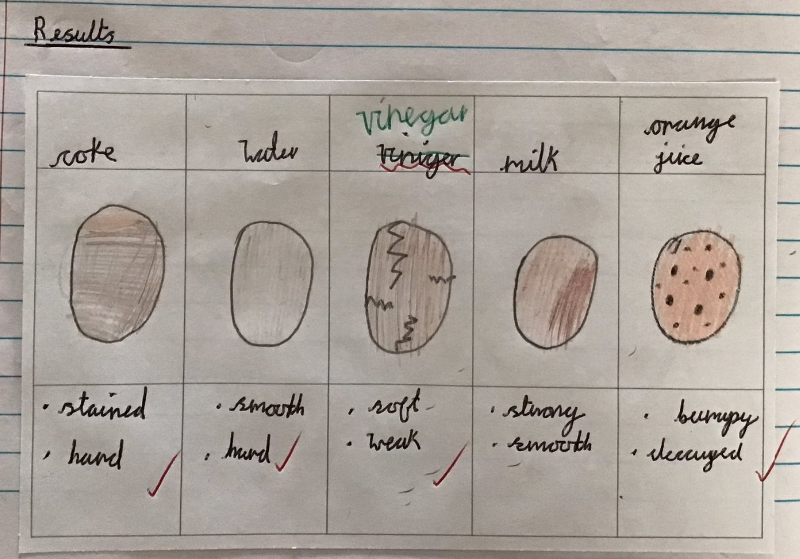 Results
coke
Water
vinegar
Viniger
milk
orange
juice
• stained
• hard
• smooth
• hard
• soft
• weak
• strong
• smooth
• bumpy
• decayed